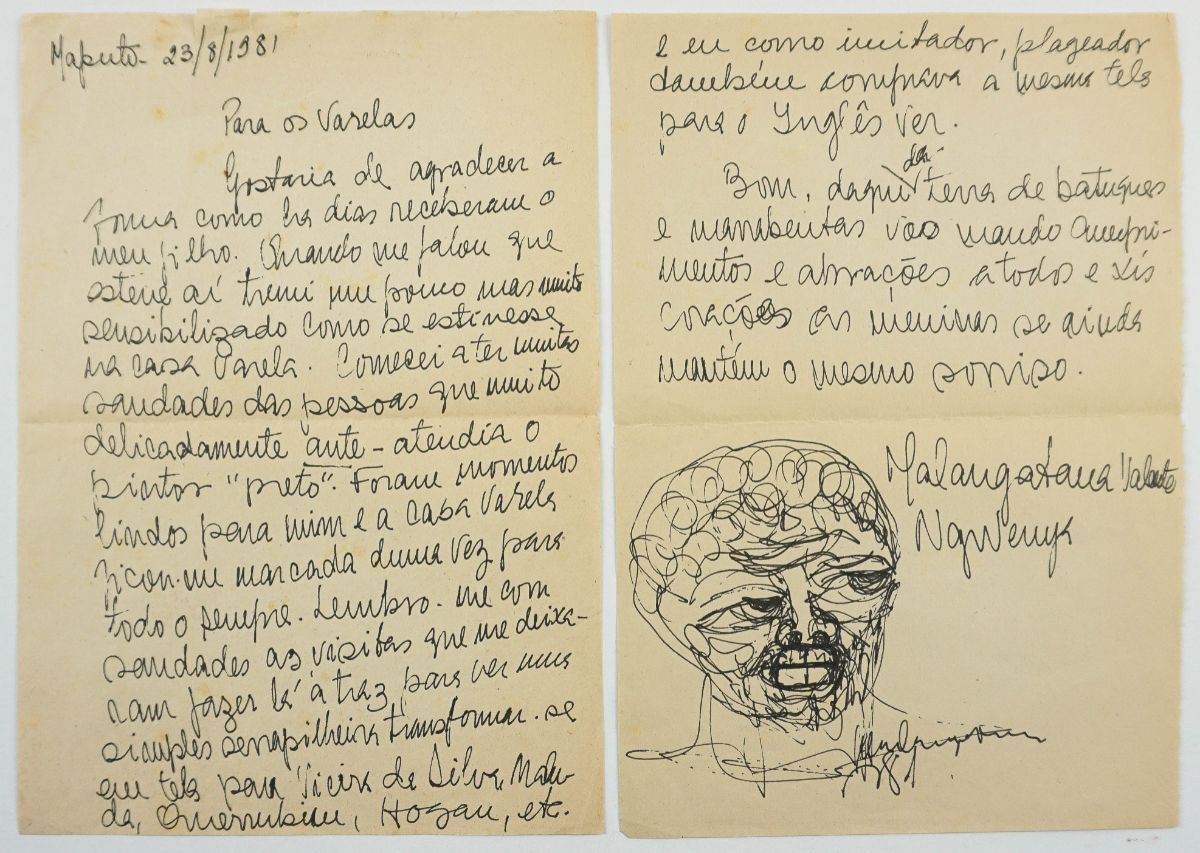 Maputo - 23/8/1981
Para os Varelas
Gostaria de agradecer a
forma como ha dias receberam o
meu filho. Quando me falou que
esteve aí tremi um pouco mas muito
sensibilizado como se estivesse
na casa Varela. Comecei a ter muitas
saudades das pessoas que muito
delicadamente ante-atendia o
pintor "preto". Foram momentos
lindos para mim e a casa Varela
ficou-me marcada duma vez para
todo o sempre. Lembro-me com
saudades as visitas que me deixa-
ram fazer lá à traz para ver uma
simples serrapilheira transformar-se
em tela para Vieira da Silva, Malu-
da, Querubim, Hogan, etc.
e eu como imitador, plageador
também comprava a mesma tela
para o Inglês ver.
Bom, daqui da- terra de batuques
e marrabentas vos mando cumpri-
mentos e abrações a todos e xis
corações as meninas se ainda
mantém o mesmo sorriso.
Malangatana Valente
Ngwenya